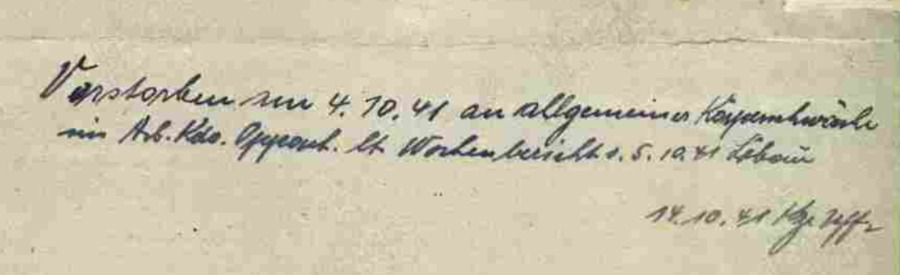 Verstorben am 4.10.41 an allgemeiner Körperschwäche
im Arb. Kdo. lt. Wochenbericht v. 5.10.41 Löbau
14.10.41